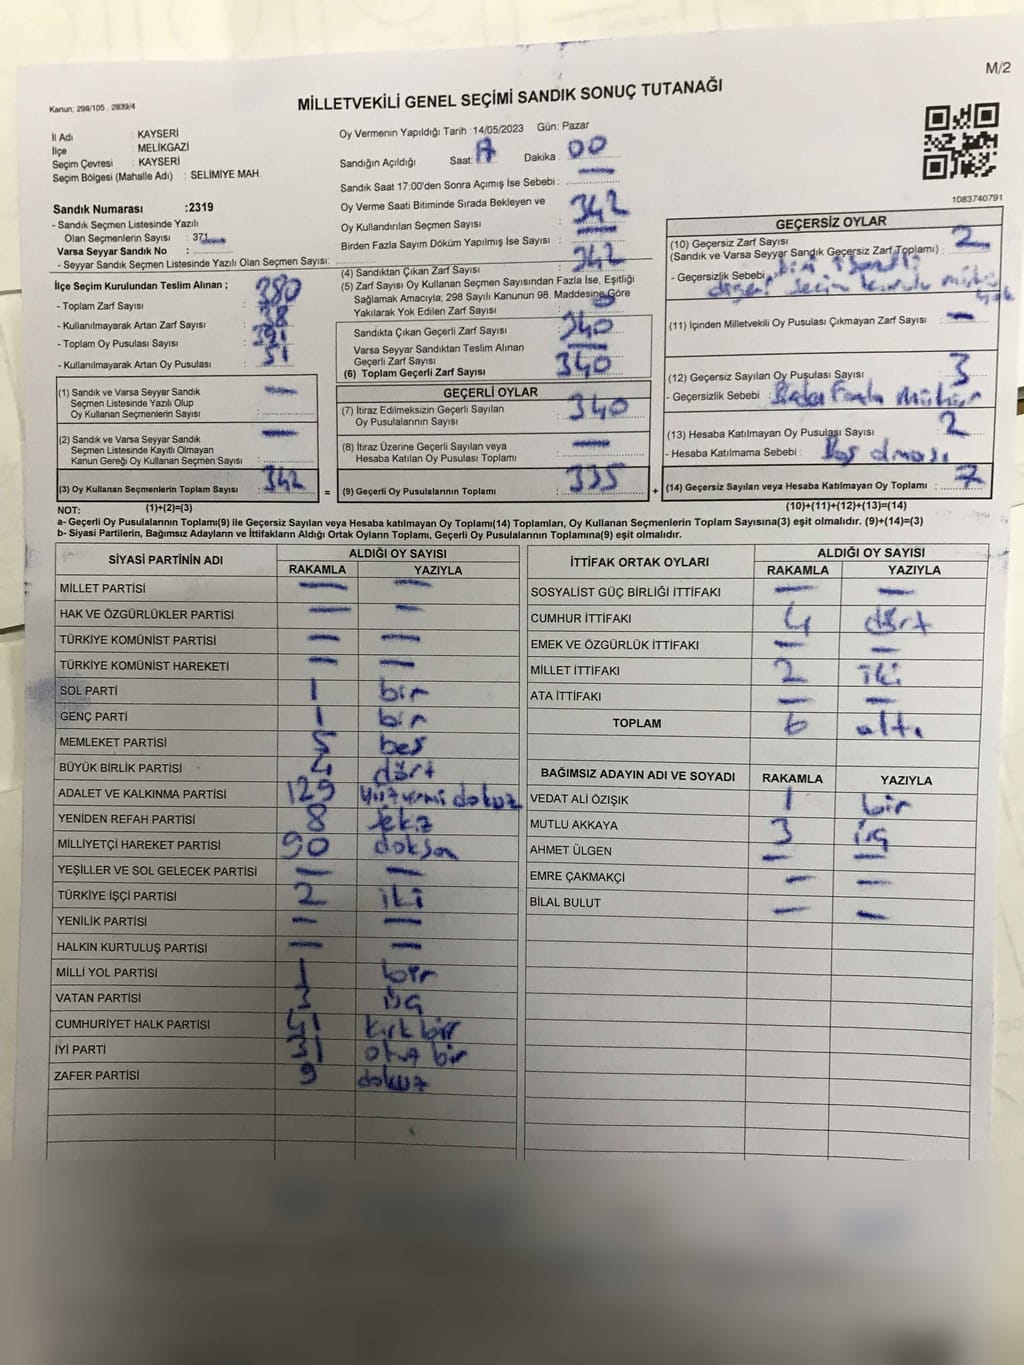 M/2
Kanun: 298/105 . 2839/4
MİLLETVEKİLİ GENEL SEÇİMİ SANDIK SONUÇ TUTANAĞI
İl Adı : KAYSERİ
İlçe : MELİKGAZİ
Seçim Çevresi : KAYSERİ
Seçim Bölgesi (Mahalle Adı) : SELİMİYE MAH.
Sandık Numarası :2319
- Sandık Seçmen Listesinde Yazılı
Olan Seçmenlerin Sayısı : 371
Varsa Seyyar Sandık No :
- Seyyar Sandık Seçmen Listesinde Yazılı Olan Seçmen Sayısı:
İlçe Seçim Kurulundan Teslim Alınan ;
- Toplam Zarf Sayısı : 380
- Kullanılmayarak Artan Zarf Sayısı : 38
- Toplam Oy Pusulası Sayısı : 391
- Kullanılmayarak Artan Oy Pusulası : 51
(1) Sandık ve Varsa Seyyar Sandık
Seçmen Listesinde Yazılı Olup
Oy Kullanan Seçmenlerin Sayısı : —
(2) Sandık ve Varsa Seyyar Sandık
Seçmen Listesinde Kayıtlı Olmayan
Kanun Gereği Oy Kullanan Seçmen Sayısı : —
(3) Oy Kullanan Seçmenlerin Toplam Sayısı : 342
Oy Vermenin Yapıldığı Tarih :14/05/2023 Gün: Pazar
Sandığın Açıldığı Saat: Dakika : 00
Sandık Saat 17:00'den Sonra Açımış İse Sebebi : —
Oy Verme Saati Bitiminde Sırada Bekleyen ve
Oy Kullandırılan Seçmen Sayısı : 342
Birden Fazla Sayım Döküm Yapılmış İse Sayısı : —
(4) Sandıktan Çıkan Zarf Sayısı : 342
(5) Zarf Sayısı Oy Kullanan Seçmen Sayısından Fazla İse, Eşitliği
Sağlamak Amacıyla; 298 Sayılı Kanunun 98. Maddesine Göre
Yakılarak Yok Edilen Zarf Sayısı : 0
Sandıkta Çıkan Geçerli Zarf Sayısı : 340
Varsa Seyyar Sandıktan Teslim Alınan
Geçerli Zarf Sayısı : —
(6) Toplam Geçerli Zarf Sayısı : 340
GEÇERLİ OYLAR
(7) İtiraz Edilmeksizin Geçerli Sayılan
Oy Pusulalarının Sayısı : 340
(8) İtiraz Üzerine Geçerli Sayılan veya
Hesaba Katılan Oy Pusulası Toplamı : —
= (9) Geçerli Oy Pusulalarının Toplamı : 335 +
1083740791
GEÇERSİZ OYLAR
(10) Geçersiz Zarf Sayısı
(Sandık ve Varsa Seyyar Sandık Geçersiz Zarf Toplamı) : 2
- Geçersizlik Sebebi : biri işaretli
diğeri seçim kurulu mührü
yok
(11) İçinden Milletvekili Oy Pusulası Çıkmayan Zarf Sayısı : —
(12) Geçersiz Sayılan Oy Pusulası Sayısı : 3
- Geçersizlik Sebebi : Birden Fazla Mühür
(13) Hesaba Katılmayan Oy Pusulası Sayısı : 2
- Hesaba Katılmama Sebebi : Boş olması
(14) Geçersiz Sayılan veya Hesaba Katılmayan Oy Toplamı : 7
NOT: (1)+(2)=(3) (10)+(11)+(12)+(13)=(14)
a- Geçerli Oy Pusulalarının Toplamı(9) ile Geçersiz Sayılan veya Hesaba katılmayan Oy Toplamı(14) Toplamları, Oy Kullanan Seçmenlerin Toplam Sayısına(3) eşit olmalıdır. (9)+(14)=(3)
b- Siyasi Partilerin, Bağımsız Adayların ve İttifakların Aldığı Ortak Oyların Toplamı, Geçerli Oy Pusulalarının Toplamına(9) eşit olmalıdır.
SİYASİ PARTİNİN ADI ALDIĞI OY SAYISI
RAKAMLA YAZIYLA
MİLLET PARTİSİ — —
HAK VE ÖZGÜRLÜKLER PARTİSİ — —
TÜRKİYE KOMÜNİST PARTİSİ — —
TÜRKİYE KOMÜNİST HAREKETİ — —
SOL PARTİ 1 bir
GENÇ PARTİ 1 bir
MEMLEKET PARTİSİ 5 beş
BÜYÜK BİRLİK PARTİSİ 4 dört
ADALET VE KALKINMA PARTİSİ 129 yüzyirmi dokuz
YENİDEN REFAH PARTİSİ 8 sekiz
MİLLİYETÇİ HAREKET PARTİSİ 90 doksan
YEŞİLLER VE SOL GELECEK PARTİSİ — —
TÜRKİYE İŞÇİ PARTİSİ 2 iki
YENİLİK PARTİSİ — —
HALKIN KURTULUŞ PARTİSİ — —
MİLLİ YOL PARTİSİ 1 bir
VATAN PARTİSİ 3 üç
CUMHURİYET HALK PARTİSİ 41 kırk bir
İYİ PARTİ 31 otuz bir
ZAFER PARTİSİ 9 dokuz
İTTİFAK ORTAK OYLARI ALDIĞI OY SAYISI
RAKAMLA YAZIYLA
SOSYALİST GÜÇ BİRLİĞİ İTTİFAKI — —
CUMHUR İTTİFAKI 4 dört
EMEK VE ÖZGÜRLÜK İTTİFAKI — —
MİLLET İTTİFAKI 2 iki
ATA İTTİFAKI — —
TOPLAM 6 altı
BAĞIMSIZ ADAYIN ADI VE SOYADI RAKAMLA YAZIYLA
VEDAT ALİ ÖZIŞIK 1 bir
MUTLU AKKAYA 3 üç
AHMET ÜLGEN — —
EMRE ÇAKMAKÇİ — —
BİLAL BULUT — —